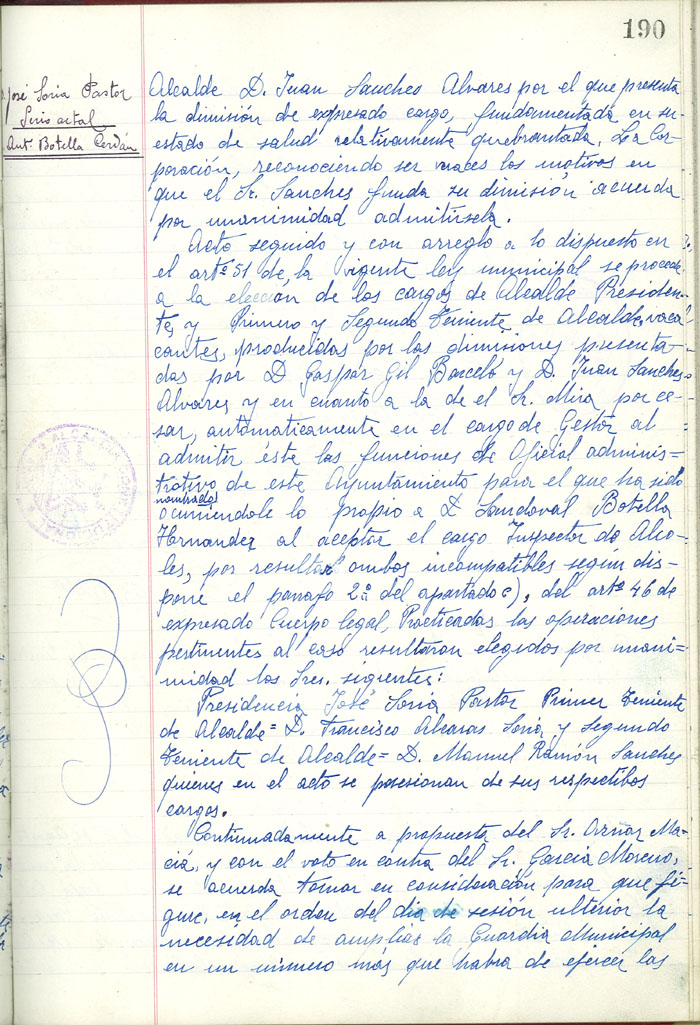 190
José Soria Pastor
Ant. Botella Cerdán
Alcalde D. Juan Sanches Alvares por el que presenta
la dimisión de expresado cargo, fundamentada en su
estado de salud relativamente quebrantada. La Cor-
poración, reconociendo ser veraces los motivos en
que el Sr. Sanches funda su dimisión acuerda
por unanimidad admitirsela.
Acto seguido y con arreglo a lo dispuesto en
el artº 51 de la vigente ley municipal se procede
a la elección de los cargos de Alcalde Presiden-
te, y Primero y Segundo Teniente de Alcalde, vaca
cantes, producidas por las dimisiones presenta-
das por D Gaspar Gil Barceló y D. Juan Sanches
Alvares y en cuanto a la de el Sr. Mira por ce-
sar, automaticamente en el cargo de Gestor al
admitir éste las funciones de Oficial adminis-
trativo de este Ayuntamiento para el que ha sido
nombrado
ocurriendole lo propio a D Sandoval Botella
Hernandez al aceptar el cargo Inspector de Alco-
les, por resultar ambos incompatibles según dis-
pone el parrafo 2º del apartado c), del artº 46 de
expresado Cuerpo legal, Practicadas las operaciones
pertinentes al caso resultaron elegidos por unani-
midad los Sres. sigrentes:
Presidencia José Soria Pastor Primer Teniente
de Alcalde = D. Francisco Alcaras Soria y Segundo
Teniente de Alcalde = D. Manuel Ramón Sanches
quienes en el acto se posesionan de sus respectibos
cargos.
Continuadamente a propuesta del Sr. Aznar Ma-
ciá, y con el voto en contra del Sr. García Moreno,
se acuerda tomar en consideración para que fi-
gure, en el orden del dia de sesión ulterior la
necesidad de ampliar la Guardia Municipal
en un número más que habra de ejercer las